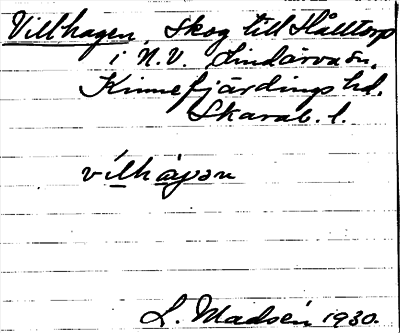 Villhagen, Skog till Hålltorp
i N.V. Lindärva sn,
Kinnefjärdings hd.
Skarab. l.
vílhàgən
L. Madsén 1930.